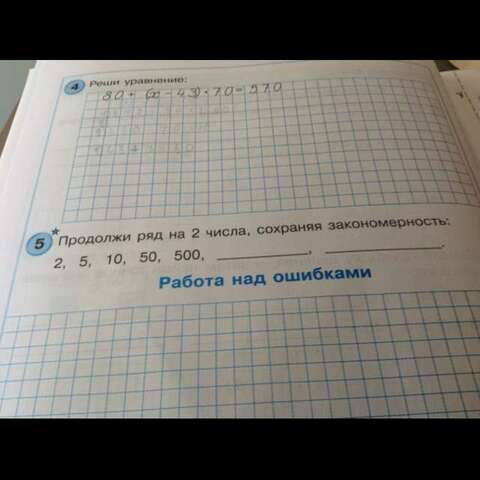 4 Реши уравнение:
80 + (x - 43) · 70 = 570
5* Продолжи ряд на 2 числа, сохраняя закономерность:
2, 5, 10, 50, 500, ________, ________.
Работа над ошибками